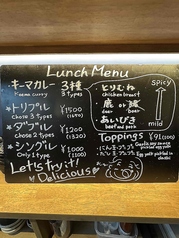 Lunch Menu
キーマカレー 3種
Keema curry 3 types
★トリプル ¥1500
chose 3 types (1650)
★ダブル ¥1200
chose 2 types (1320)
★シングル ¥1000
Only 1 type (1100)
Let's try it!
Delicious
とりむね
chicken breast
鹿 or 猪
deer boar
あいびき
beef and pork
spicy
Mild
Toppings ¥91(100)